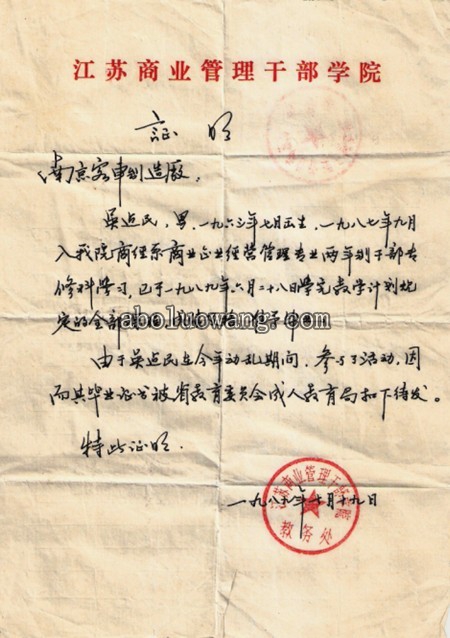 江苏商业管理干部学院
证明
南京客车制造厂：
吴近民，男，一九六三年七月出生，一九八七年九月
入我院商经系商业企业经营管理专业两年制干部专
修科学习，已于一九八九年六月二十八日学完教学计划规
定的全部
aboluowang.com
由于吴近民在今年动乱期间，参与了活动，因
而其毕业证书被省教育委员会成人教育局扣下待发。
特此证明。
一九八九年七月十九日
江苏商业管理干部学院
教务处